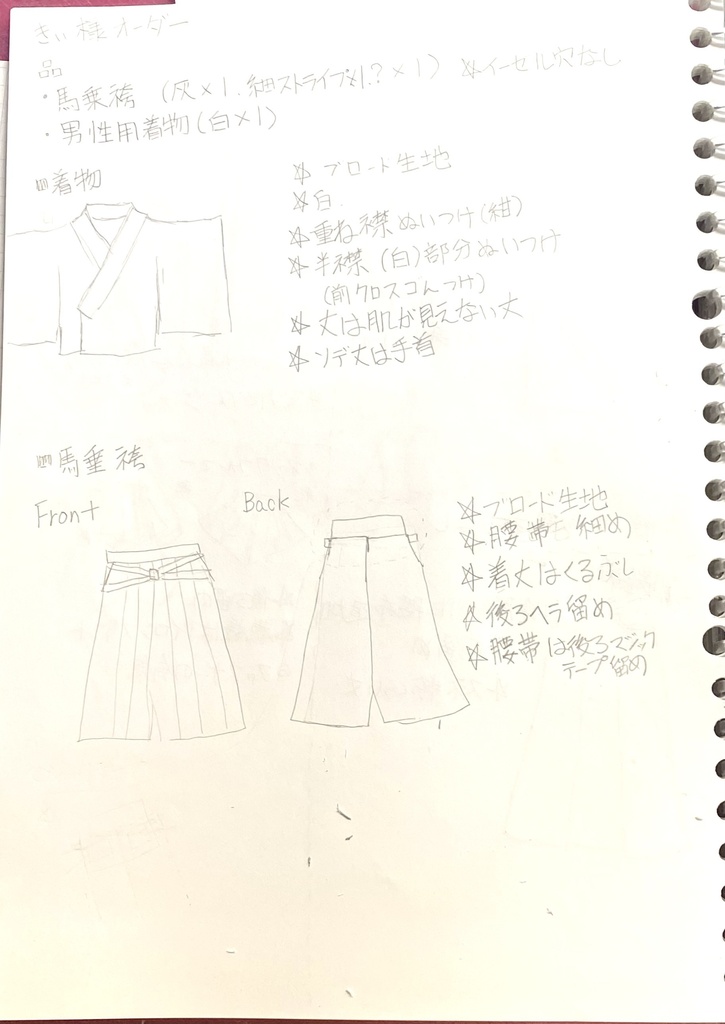 きい様オーダー
品
・馬乗袴 (灰×1. 細ストライプ×1.?×1) ☆イーゼル穴なし
・男性用着物(白×1)
着物
☆ブロード生地
☆白.
☆重ね襟ぬいつけ(紺)
☆半襟 (白)部分ぬいつけ
(前クロスコんつけ)
☆丈は肌が見えない丈
☆ソデ丈は手首
馬乗袴
Front
Back
☆ブロード生地
☆腰帯 細め
☆着丈はくるぶし
☆後ろヘラ留め
☆腰帯は後ろマジック
テープ留め